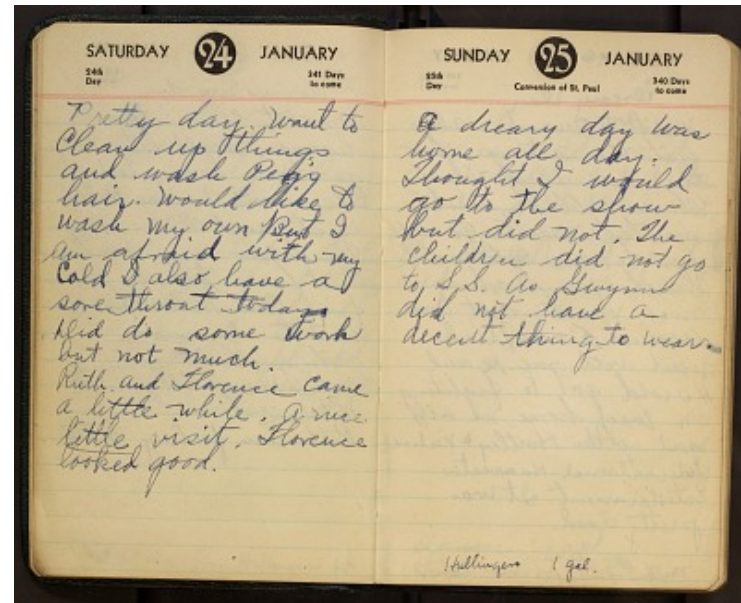 SATURDAY 24 JANUARY
24th Day
341 Days to come
Pretty day. Want to
Clean up things
and wash Peg's
hair. Would like to
wash my own But I
am afraid with my
Cold I also have a
sore throat today
Did do some work
but not much.
Ruth and Florence came
a little while. a nice
little visit. Florence
looked good.
SUNDAY 25 JANUARY
25th Day
Conversion of St. Paul
340 Days to come
A dreary day Was
home all day.
Thought I would
go to the show
but did not. The
children did not go
to S.S. as Gwynn
did not have a
decent thing to wear.
Hullingers 1 gal.